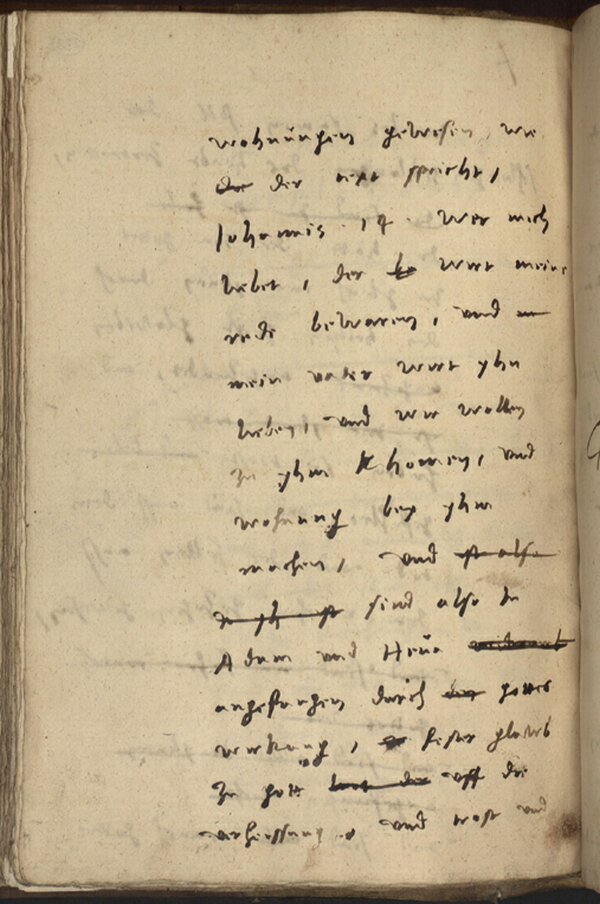 wohnungen gewesen, wie
die der text spricht,
Johannis. 14. Wer mich
liebet, der wirt meine
rede bewaren, und
mein vater wirt yhn
lieben, und wir wollen
zu yhm khomen, und
wohnung bey yhm
machen, und ist also
sind also in
Adam und Heua
angefangen durch gottes
wirkung, fester glaub
zu gott uff die
verheissung, und trost und